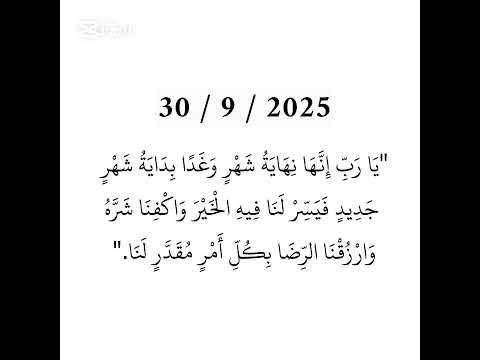 30 / 9 / 2025
"يَا رَبِّ إِنَّهَا نِهَايَةُ شَهْرٍ وَغَدًا بِدَايَةُ شَهْرٍ
جَدِيدٍ فَيَسِّرْ لَنَا فِيهِ الْخَيْرَ وَاكْفِنَا شَرَّهُ
وَارْزُقْنَا الرِّضَا بِكُلِّ أَمْرٍ مُقَدَّرٍ لَنَا."